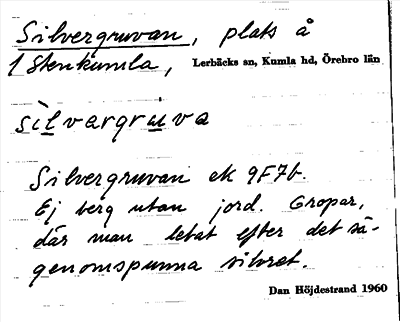 Silvergruvan, plats å
1 Stenkumla, Lerbäcks sn, Kumla hd, Örebro län
silvargruva
Silvergruvan ek 9F7b.
Ej berg utan jord. Gropar,
där man letat efter det sä-
genomspunna silvret.
Dan Höjdestrand 1960